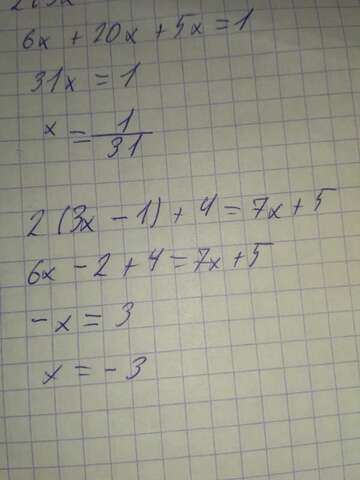 6x + 20x + 5x = 1
31x = 1
x = 1/31
2 (3x - 1) + 4 = 7x + 5
6x - 2 + 4 = 7x + 5
-x = 3
x = -3